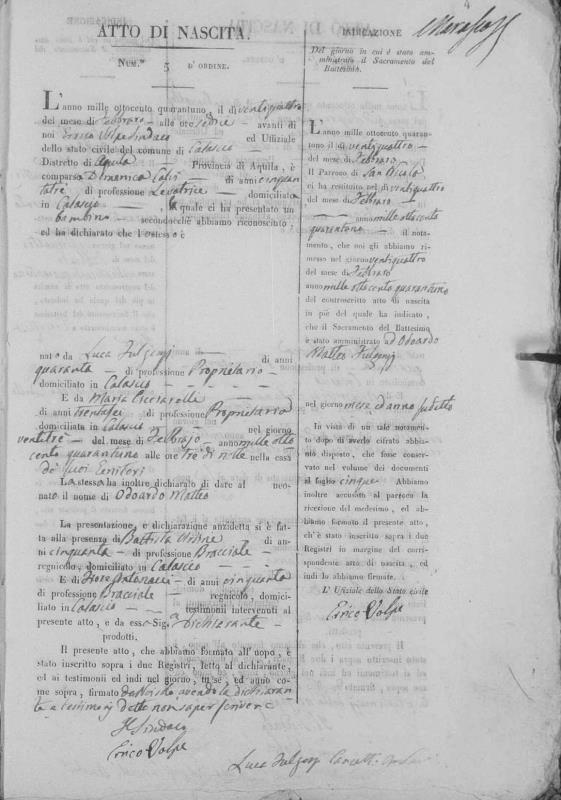 ATTO DI NASCITA.
Num.º 5 D'ORDINE.
L'anno mille ottocento quarantuno, il dì ventiquattro
del mese di Febbraro alle ore sedici avanti di
noi Errico Volpe Sindaco ed Uffiziale
dello stato civile del comune di Calascio
Distretto di Aquila Provincia di Aquila, è
comparsa Domenica di anni cinquan
tatrè di professione Levatrice domiciliata
in Calascio la quale ci ha presentato un
bambino secondocchè abbiamo riconosciuto,
ed ha dichiarato che l'ostesso è
nato da Luca Fulgenzj di anni
quaranta di professione Proprietario
domiciliato in Calascio
E da Maria Ciccarelle
di anni trentasei di professione Proprietaria
domiciliata in Calascio nel giorno
ventitrè del mese di Febbrajo anno mille otto
cento quarantuno alle ore tre di notte nella casa
de' suoi Genitori
La stessa ha inoltre dichiarato di dare al neo-
nato il nome di Odoardo Matteo
La presentazione, e dichiarazione anzidetta si è fat-
ta alla presenza di Battista di an-
ni cinquanta di professione Bracciale
regnicolo, domiciliato in Calascio
E di Fiore Antonacci di anni cinquanta
di professione Bracciale regnicolo, domici-
liato in Calascio testimoni intervenuti al
presente atto, e da essa Sig.ª dichiarante
prodotti.
Il presente atto, che abbiamo formato all'uopo, è
stato inscritto sopra i due Registri, letto al dichiarante,
ed ai testimoni ed indi nel giorno, mese, ed anno co-
me sopra, firmato da Noi avendo la dichiaran
te e testimonj detto non saper scrivere
Il Sindaco
Errico Volpe
Luca Fulgenzj
INDICAZIONE
Del giorno in cui è stato am-
ministrato il Sacramento del
Battesimo.
L'anno mille ottocento quaran-
tuno il dì ventiquattro
del mese di Febbraro
Il Parroco di San Nicola
ci ha restituito nel dì ventiquattro
del mese di Febbraro
anno mille ottocento
quarantuno il nota-
mento, che noi gli abbiamo ri-
messo nel giorno ventiquattro
del mese di Febbraro
anno mille ottocento quarantuno
del controscritto atto di nascita
in piè del quale ha indicato,
che il Sacramento del Battesimo
è stato amministrato ad Odoardo
Matteo Fulgenzj
nel giorno mese ed anno suddetto
In vista di un tale notamento
dopo di averlo cifrato abbia-
mo disposto, che fosse conser-
vato nel volume dei documenti
al foglio cinque Abbiamo
inoltre accusato al parroco la
ricezione del medesimo, ed ab-
biamo formato il presente atto,
ch'è stato inscritto sopra i due
Registri in margine del corris-
pondente atto di nascita, ed
indi lo abbiamo firmato.
L'Uffiziale dello Stato civile
Errico Volpe